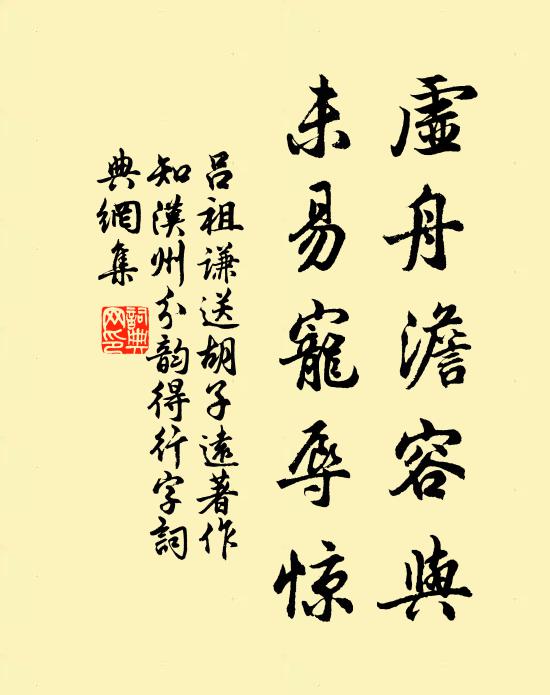 虛舟澹容與
未易寵辱惊
吕祖谦送胡子遠著作
知漢州分韵得行字詞
典網集
詞典
网印